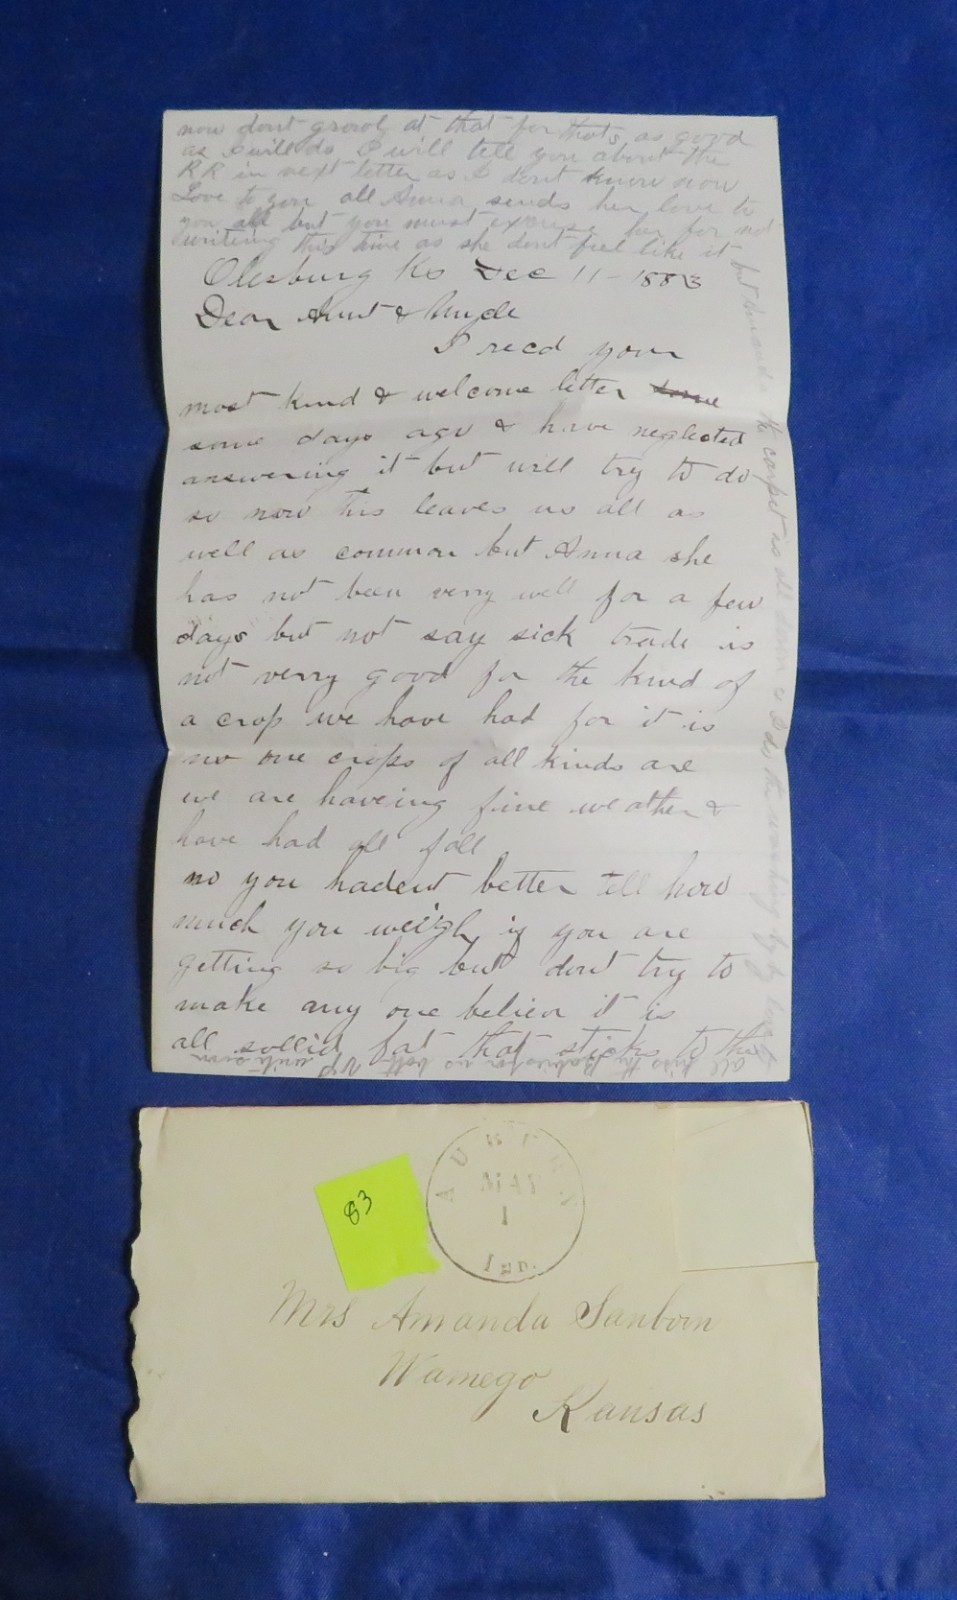 now dont growl at that for thats as good
as I will do I will tell you about the
RR in next letter as I dont know now
Love to you all Anna sends her love to
you all but you must excuse her for not
writing this time as she dont feel like it
Olesburg Ks Dec 11-1883
Dear Aunt & Uncle
I recd your
most kind & welcome letter some
some days ago & have neglected
answering it but will try to do
so now this leaves us all as
well as common but Anna she
has not been verry well for a few
days but not say sick trade is
not verry good for the kind of
a crop we have had for it is
no one crops of all kinds are
we are haveing fine weather &
have had all fall
no you hadent better tell how
much you weigh if you are
getting so big but dont try to
make any one believe it is
all sollid fat that sticks to the
but Amanda the carpet is all down & I do the washing
83
AUBURN
MAY
1
Mrs Amanda Sanborn
Wamego
Kansas